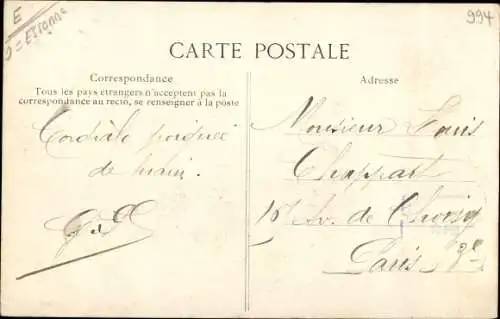 E
994
CARTE POSTALE
Correspondance
Tous les pays étrangers n'acceptent pas la
correspondance au recto, se renseigner à la poste
Cordiale poignée
de main.
Adresse
Monsieur Louis
Av. de Choisy
Paris